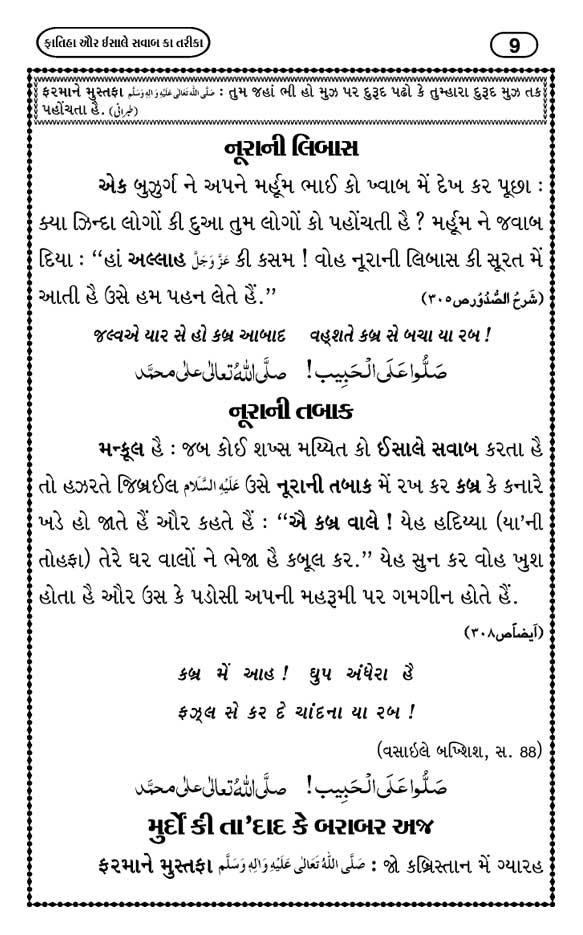 ફાતિહા ઔર ઈસાલે સવાબ કા તરીકા
9
ફરમાને મુસ્તફા صَلَّى اللهُ تَعَالٰى عَلَيْهِ وَاٰلِهٖ وَسَلَّم : તુમ જહાં ભી હો મુઝ પર દુરૂદ પઢો કે તુમ્હારા દુરૂદ મુઝ તક
પહોંચતા હૈ. (طبرانی)
નૂરાની લિબાસ
એક બુઝુર્ગ ને અપને મર્હૂમ ભાઈ કો ખ્વાબ મેં દેખ કર પૂછા :
ક્યા ઝિન્દા લોગોં કી દુઆ તુમ લોગોં કો પહોંચતી હૈ ? મર્હૂમ ને જવાબ
દિયા : “હાં અલ્લાહ عَزَّوَجَلَّ કી કસમ ! વોહ નૂરાની લિબાસ કી સૂરત મેં
આતી હૈ ઉસે હમ પહન લેતે હૈં.” (شَرْحُ الصُّدُوْر ص ۳۰۵)
જલ્વએ યાર સે હો કબ્ર આબાદ વહ્શતે કબ્ર સે બચા યા રબ !
صَلُّوْا عَلَى الْحَبِيْب ! صلَّى اللهُ تعالٰى علٰى محمَّد
નૂરાની તબાક
મન્કૂલ હૈ : જબ કોઈ શખ્સ મય્યિત કો ઈસાલે સવાબ કરતા હૈ
તો હઝરતે જિબ્રઈલ عَلَيْهِ السَّلَام ઉસે નૂરાની તબાક મેં રખ કર કબ્ર કે કનારે
ખડે હો જાતે હૈં ઔર કહતે હૈં : “ઐ કબ્ર વાલે ! યેહ હદિય્યા (યા'ની
તોહફા) તેરે ઘર વાલોં ને ભેજા હૈ કબૂલ કર.” યેહ સુન કર વોહ ખુશ
હોતા હૈ ઔર ઉસ કે પડોસી અપની મહરૂમી પર ગમગીન હોતે હૈં.
(اَيضاً ص ۳۰۸)
કબ્ર મેં આહ ! ઘુપ અંધેરા હૈ
ફઝ્લ સે કર દે ચાંદના યા રબ !
(વસાઇલે બખ્શિશ, સ. 88)
صَلُّوْا عَلَى الْحَبِيْب ! صلَّى اللهُ تعالٰى علٰى محمَّد
મુર્દોં કી તા'દાદ કે બરાબર અજ્ર
ફરમાને મુસ્તફા صَلَّى اللهُ تَعَالٰى عَلَيْهِ وَاٰلِهٖ وَسَلَّم : જો કબ્રિસ્તાન મેં ગ્યારહ